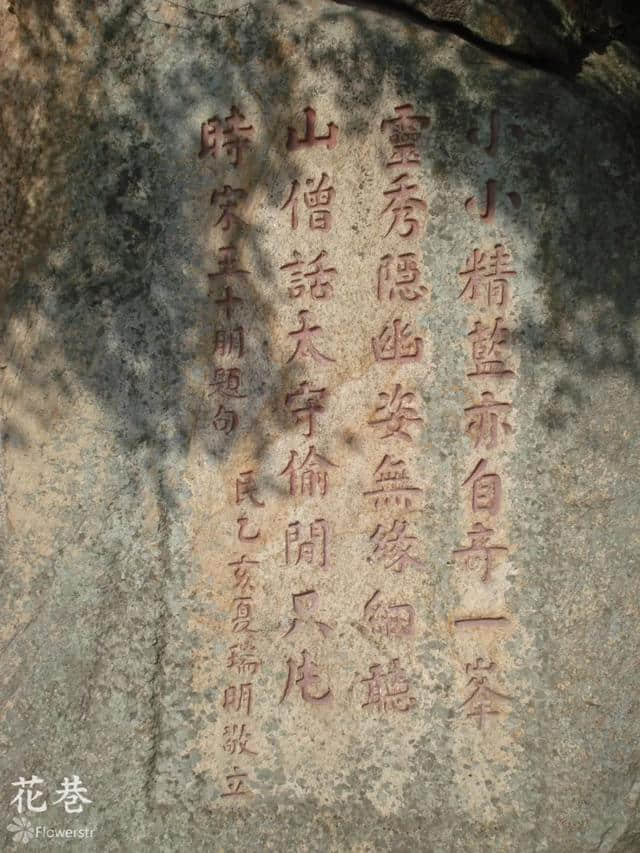 小小精藍亦自奇一峯
靈秀隱幽姿無緣細聽
山僧話太守偷閒只片
時宋王十朋題句
民乙亥夏瑞明敬立
花巷
Flowerstr